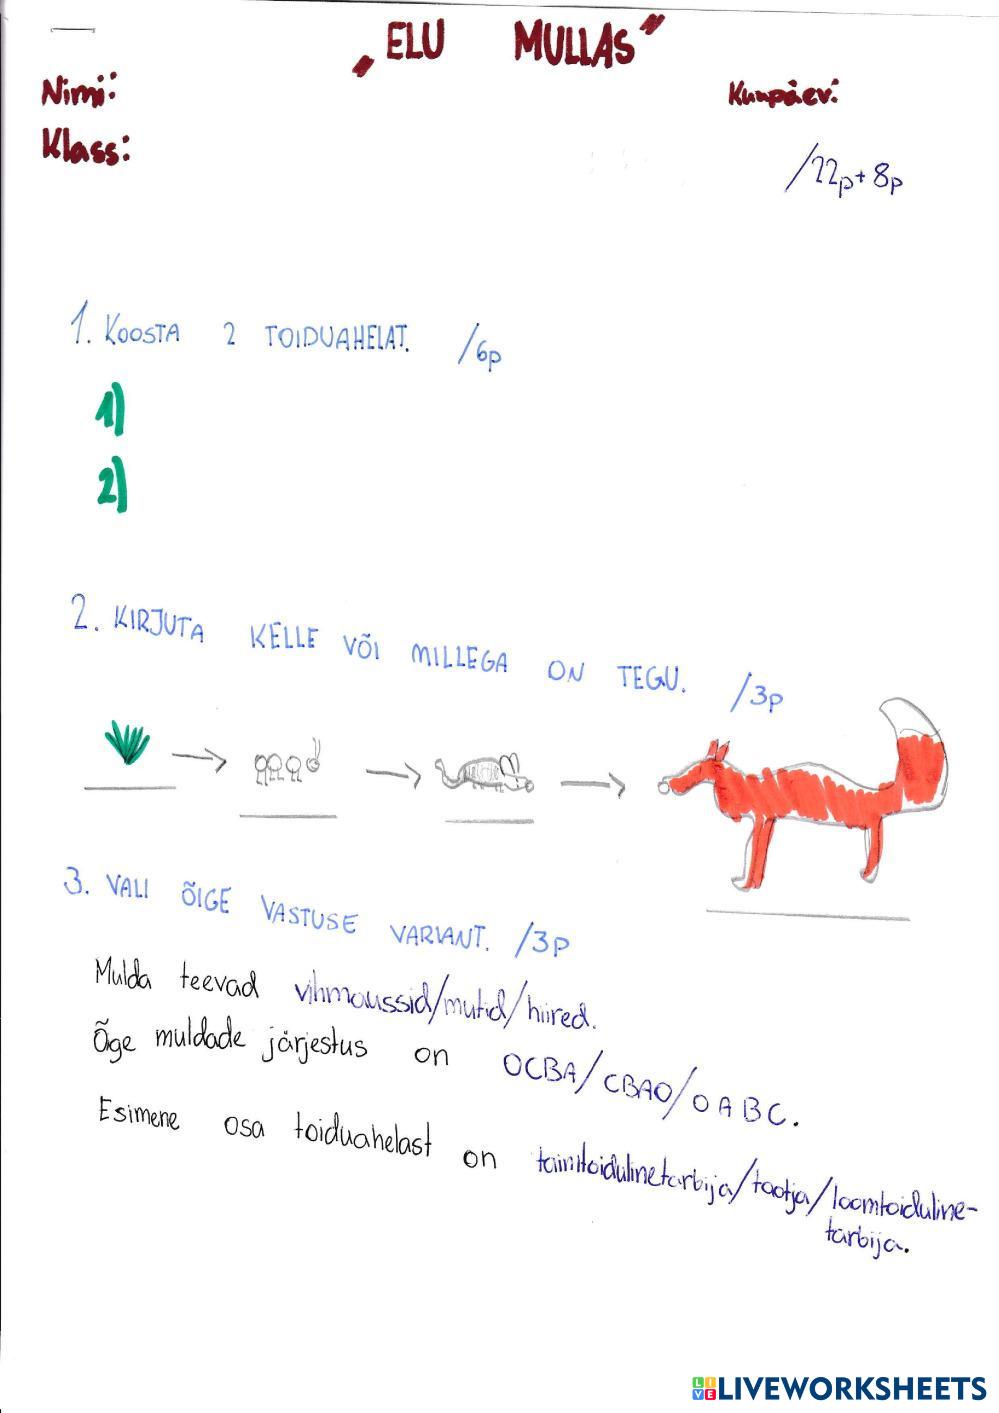 „ELU MULLAS”
Nimi:
Kuupäev:
Klass:
/22p + 8p
1. KOOSTA 2 TOIDUAHELAT. /6p
1)
2)
2. KIRJUTA KELLE VÕI MILLEGA ON TEGU. /3p
3. VALI ÕIGE VASTUSE VARIANT. /3P
Mulda teevad vihmaussid/mutid/hiired.
Õige muldade järjestus on OCBA/CBAO/OABC.
Esimene osa toiduahelast on taimtoidulinetarbija/tootja/loomtoiduline-
tarbija.
LIVEWORKSHEETS